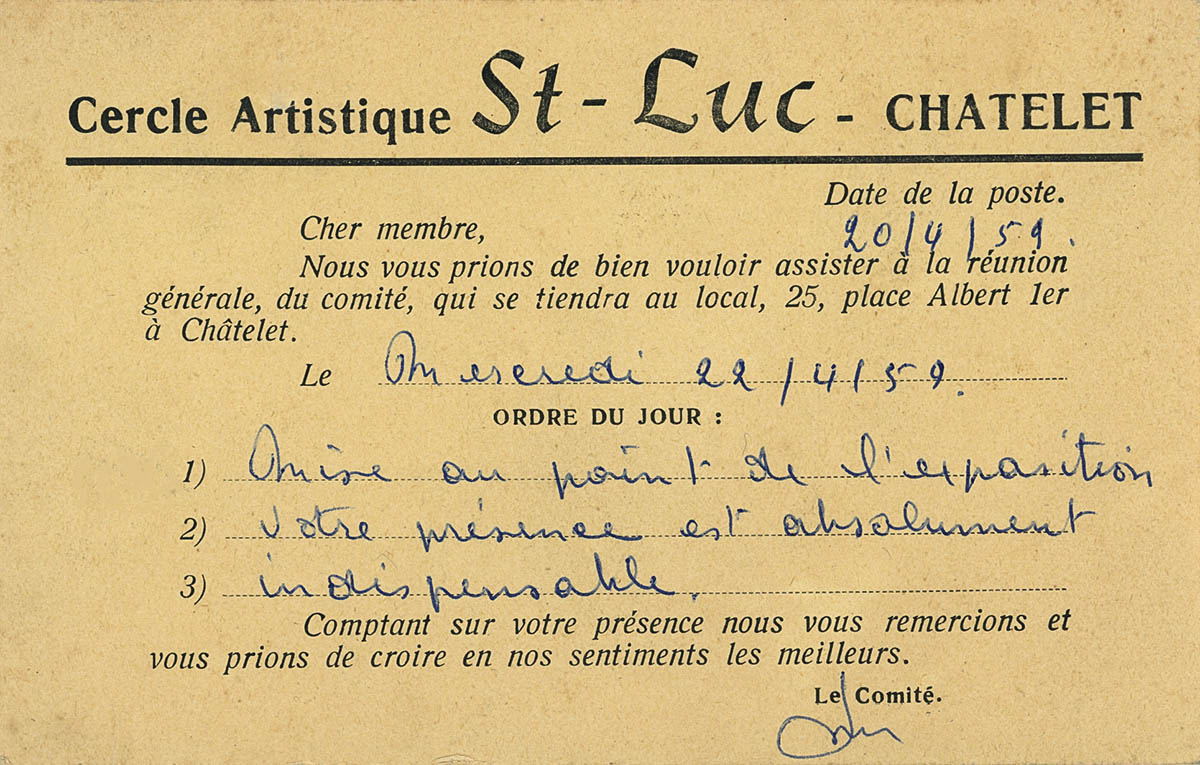 Cercle Artistique St-Luc - CHATELET
Date de la poste.
Cher membre,
20/4/59.
Nous vous prions de bien vouloir assister à la réunion
générale, du comité, qui se tiendra au local, 25, place Albert 1er
à Châtelet.
Le Mercredi 22/4/59.
ORDRE DU JOUR :
1) Mise au point de l'exposition
2) Votre présence est absolument
3) indispensable.
Comptant sur votre présence nous vous remercions et
vous prions de croire en nos sentiments les meilleurs.
Le Comité.